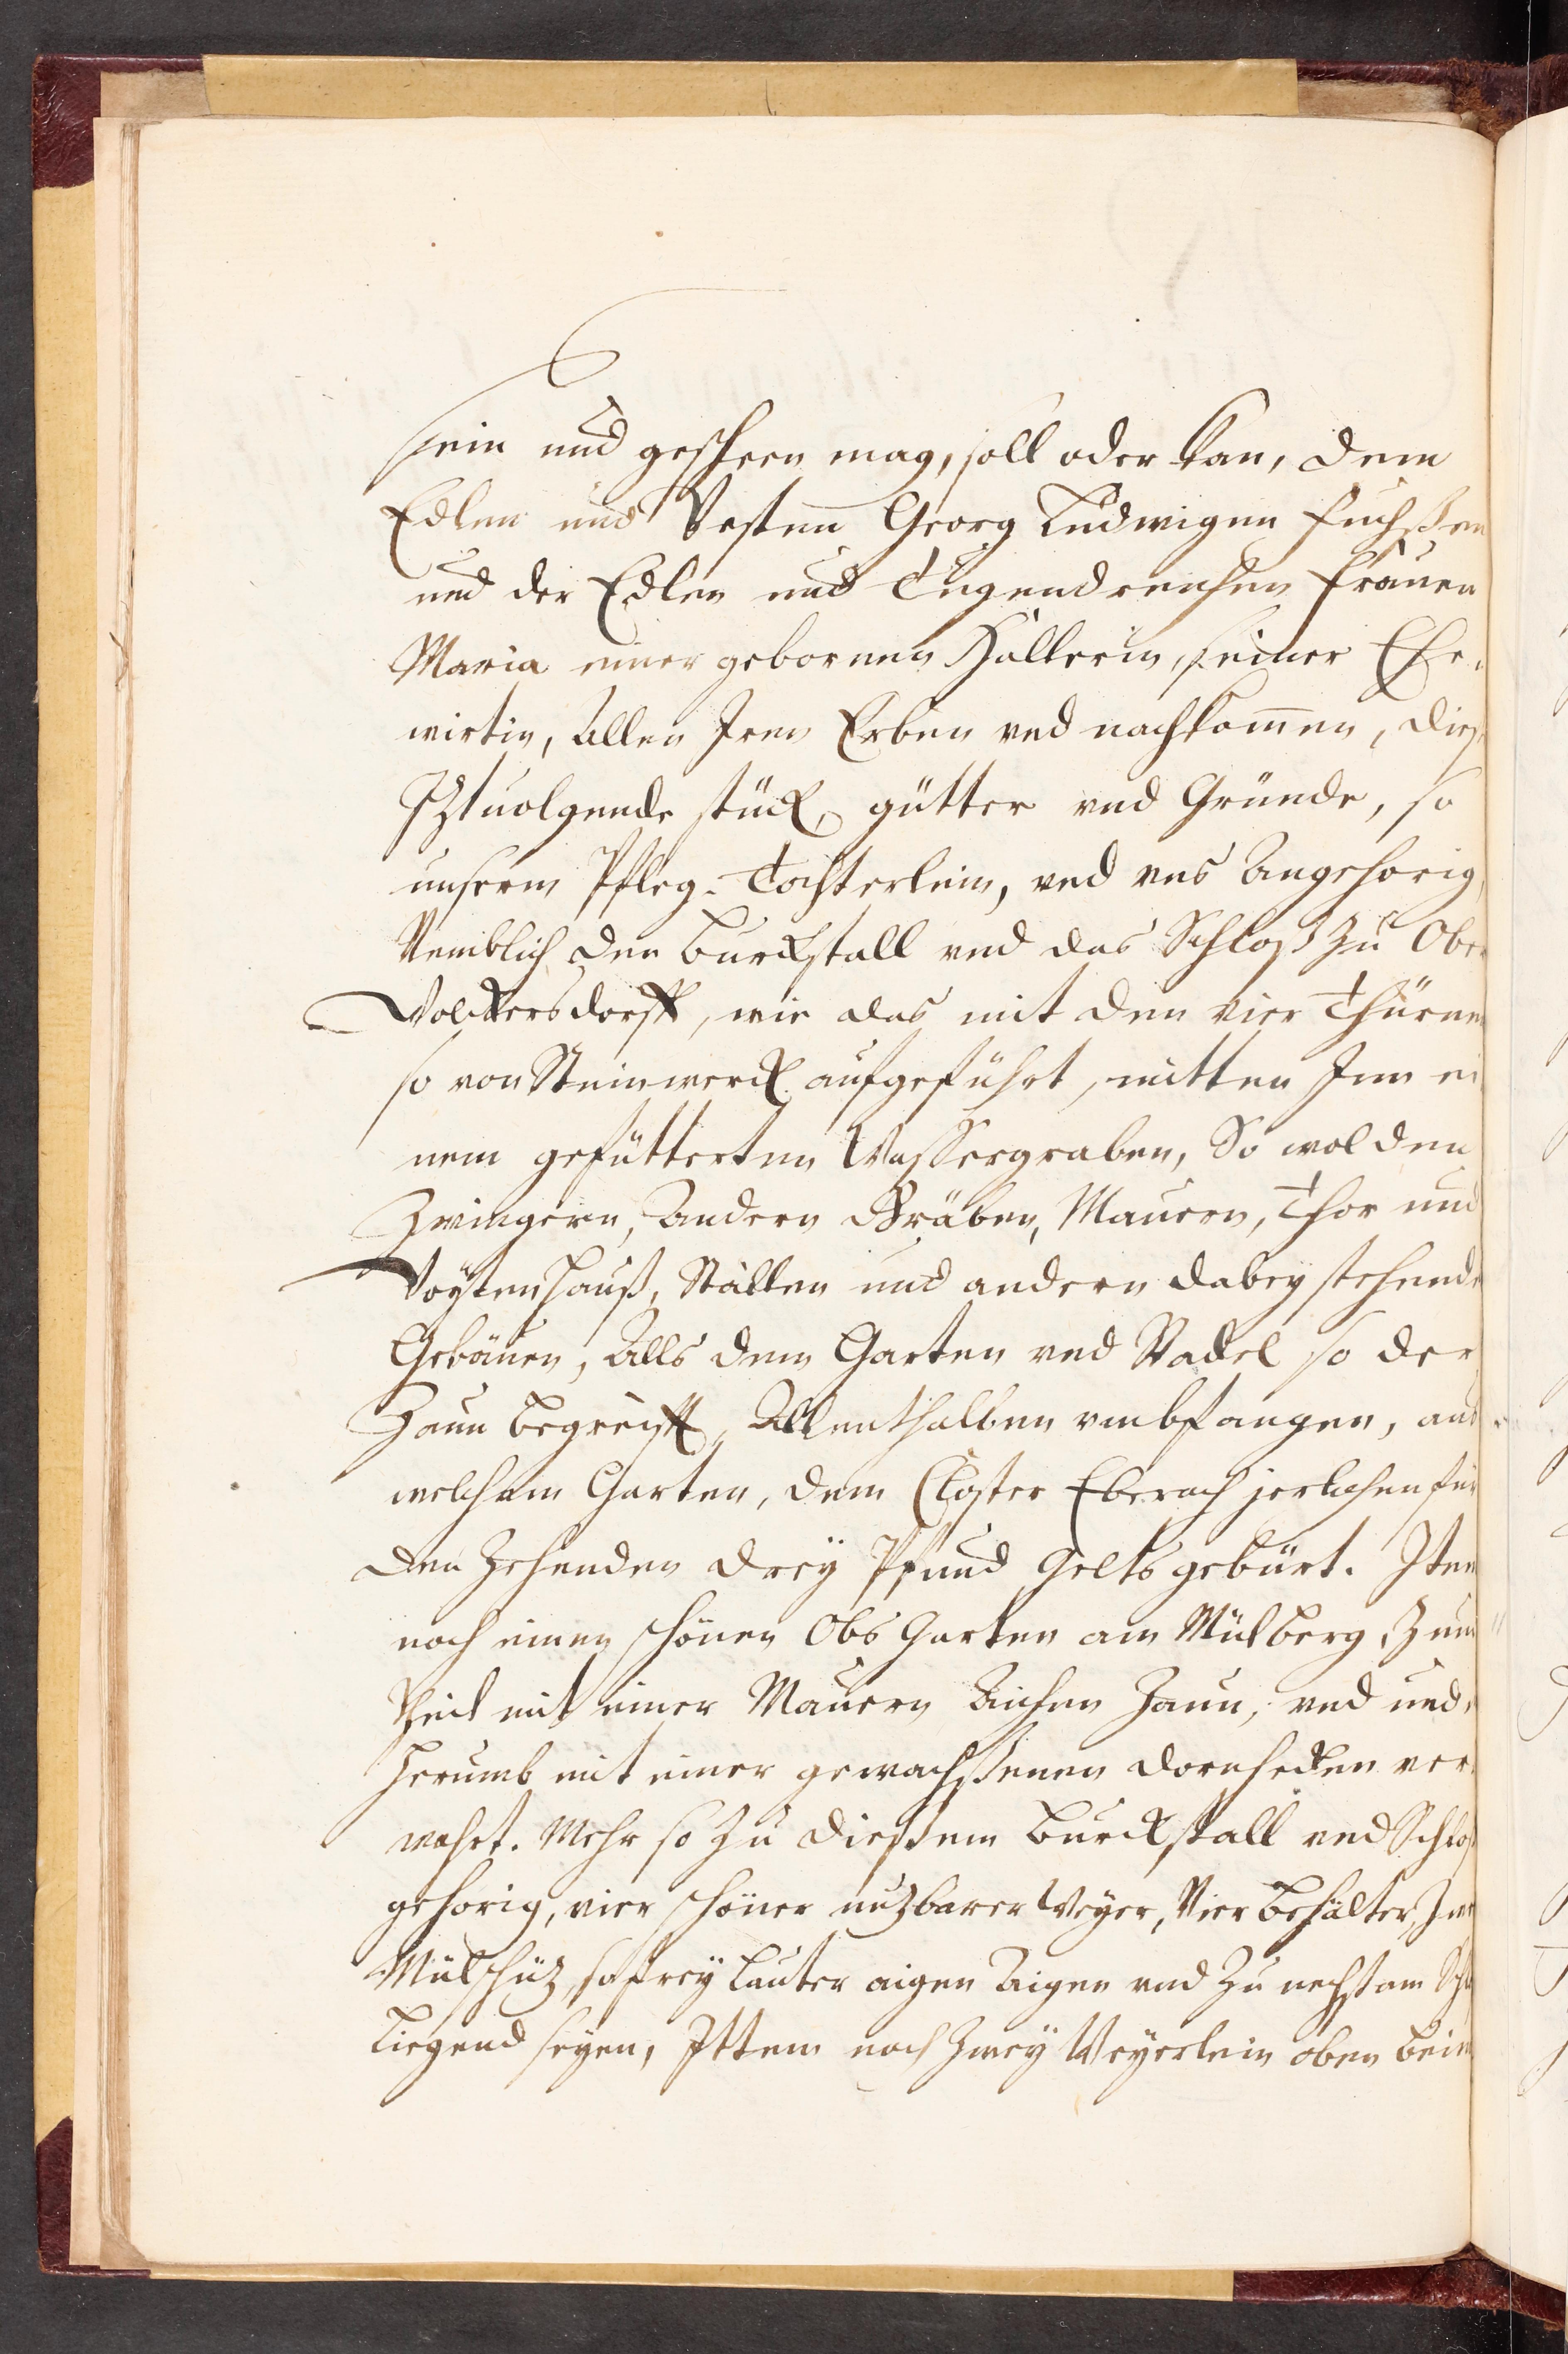 sein und geschern mag, soll oder kan, dem
Edlen und Vesten Georg Ludwigen Fuchßen
und der Edlen und Tugendreichen Frauen
Maria einer gebornen Hallerin, seiner Ehe-
wirtin, Allen Iren Erben vnd nachkom̄en, dies
Jztuolgende stück, gütter vnd Gründe, so
unserm Pfleg-Tochterlein, vnd vns Angehorig,
Nemblich den Burckstall vnd das Schloß zu Ober
Volckersdorff, wie das mit den vier Thürnen
so von Steinwerck aufgeführt, mitten Inn ei
nem gefütterten Wassergraben, So wol den
Zwingern, Andern Gräben, Mauern, Thor und
Voytenhauß, Ställen und andern dabey stehende
Gebäuen, Alls dem Garten vnd Stadel so der
Zaun begreifft, Allenthalben vmbfangen, aus
welchem Garten, dem Closter Eberach jerlichen für
den Zehenden drey Pfund Gelts gebürt. Item
noch einen schönen Obs Garten am Mülberg, Zum
Theil mit einer Mauern Aichen Zaun, vnd und
herumb mit einer gewachßenen dornhecken ver
wahrt. Mehr so zu dießem Burckstall vnd Schloß
gehorig, vier schöner nuzbarer Weyer, Vier behälter, Zwe
Mülschüz, so frey lauter aigen Aigen vnd zu nechst am Schl
liegend seyen, Ittem noch Zwey Weyerlein oben beim